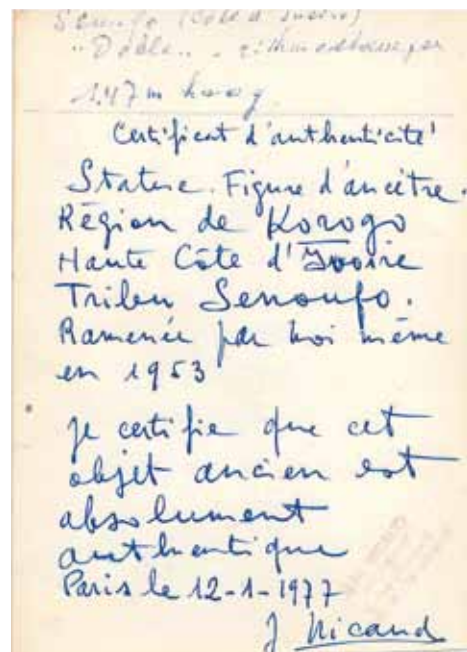 (Côte d'Ivoire)
1.47 m
Certificat d'authenticité
Statue. Figure d'ancêtre.
Région de Korogo
Haute Côte d'Ivoire
Tribu Senoufo.
Ramenée par moi même
en 1953
je certifie que cet
objet ancien est
absolument
authentique
Paris le 12-1-1977
J Nicaud